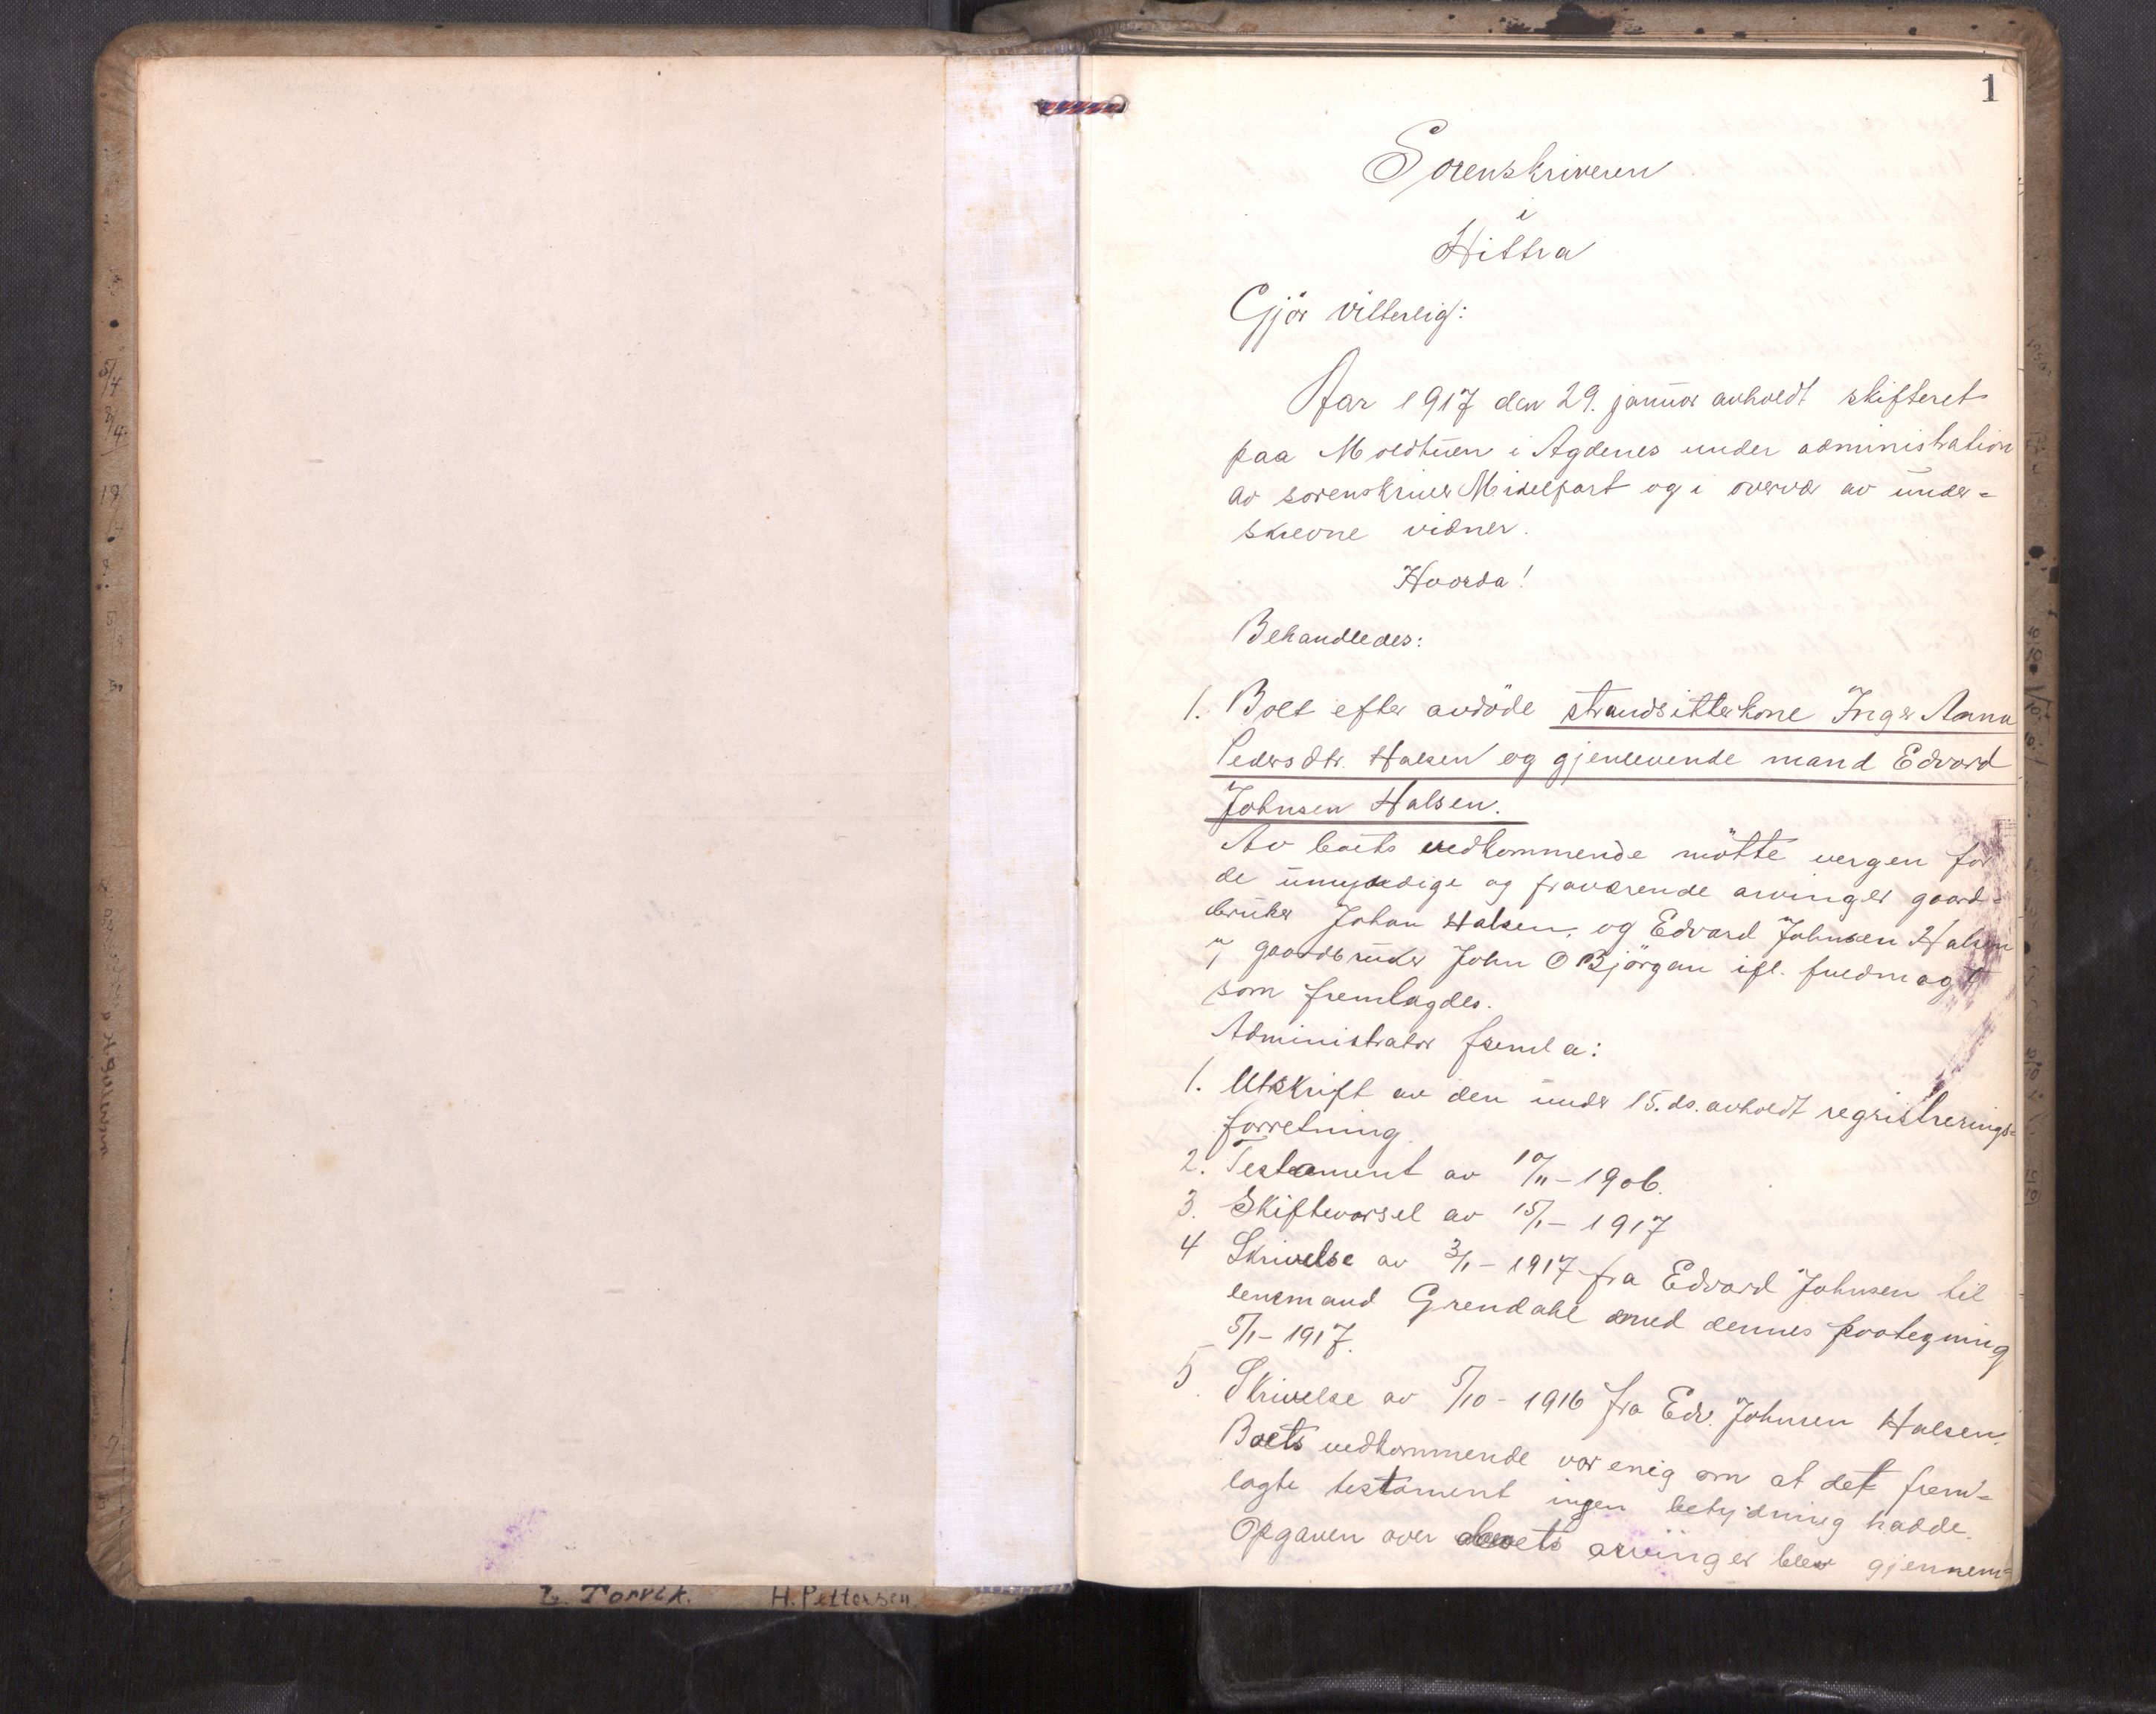 1
Sorenskriveren
i
Hittra
Gjör vitterlig:
Aar 1917 den 29. januar avholdt skifteret
paa Moldtuen i Agdenes under administration
av sorenskriver Midelfart og i overvær av under=
skrevne vidner.
Hvorda!
Behandledes:
1. Boet efter avdöde strandsitterkone Inger Anna
Pedersdtr. Halsen og gjenlevende mand Edvard
Johnsen Halsen.
Av boets vedkommende mötte vergen for
de umyndige og fraværende arvinger gaard=
bruker Johan Halsen, og Edvard Johnsen Halsen
v/ gaardbruker John O Björgan ifl. fuldmagt
som fremlagdes.
Administrator fremla:
1. Utskrift av den under 15. ds. avholdt regristrerings=
forretning
2. Testament av 10/11-1906.
3. Skiftevarsel av 15/1-1917
4 Skrivelse av 3/1-1917 fra Edvard Johnsen til
lensmand Grendahl med dennes paategning
5/1-1917.
5. Skrivelse av 5/10-1916 fra Edv. Johnsen Halsen.
Boets vedkommende var enig om at det frem=
lagte testament ingen betydning hadde.
Opgaven over boets arvinger blev gjennem=
L. Torvik. H. Pettersen